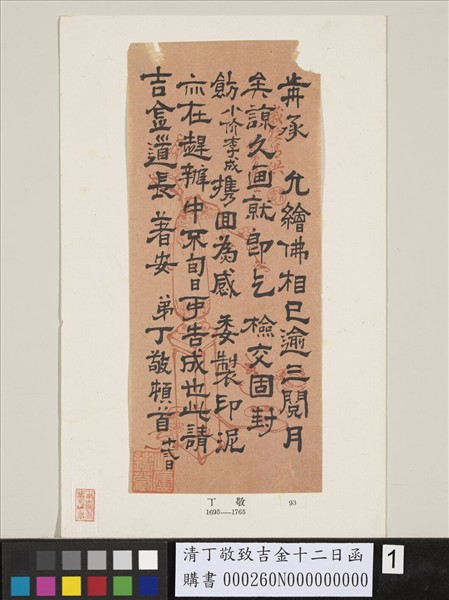 歬承 允繪佛相已逾三閱月
矣諒久画就即乞 檢交固封
飭小价李成攜回為感 委製印泥
亦在趕辦中不旬日可告成也此請
吉金道長 著安 弟丁敬頓首 十二日
丁敬
93
1695—1765
清丁敬致吉金十二日函
購書 000260N000000000
1